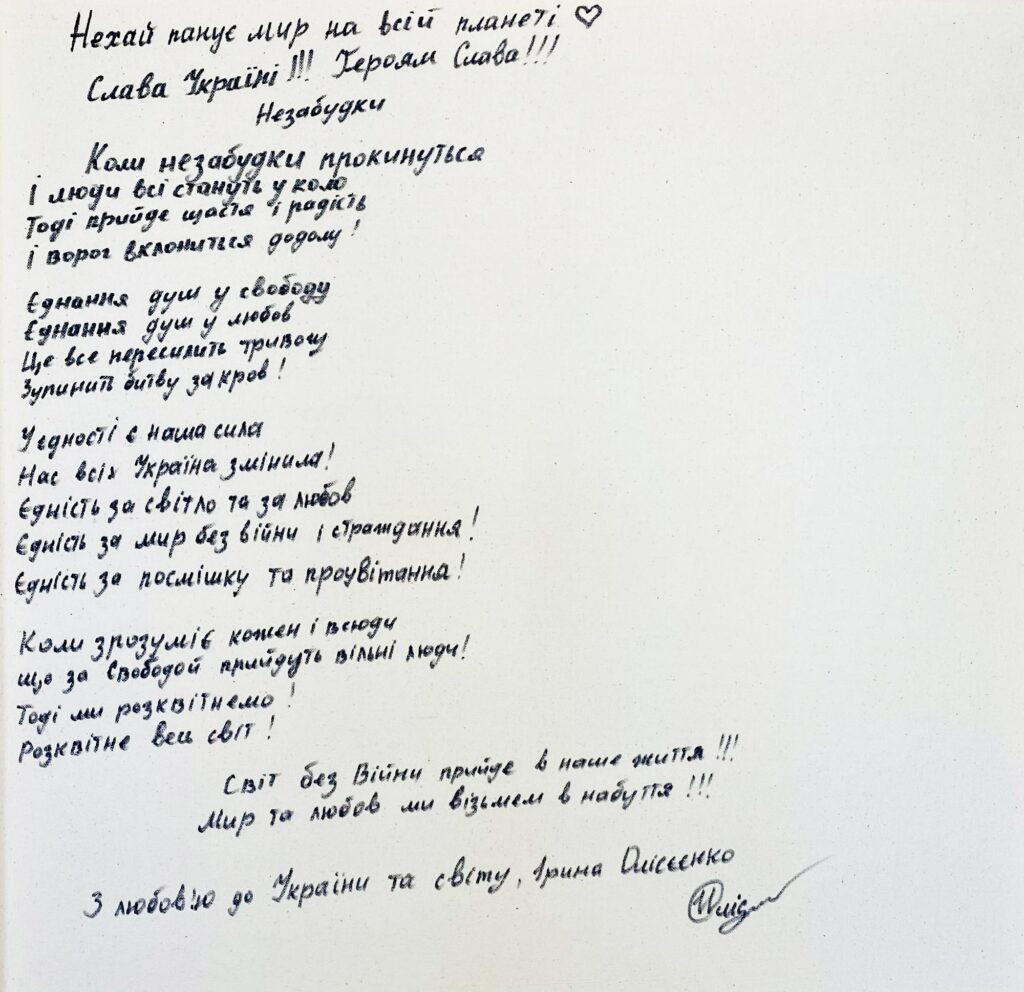 Нехай панує мир на всій планеті ♡
Слава Україні!!! Героям Слава!!!
Незабудки
Коли незабудки прокинуться
І люди всі стануть у коло
Тоді прийде щастя і радість
і ворог вклониться додолу!
Єднання душ у свободу
Єднання душ у любов
Це все пересилить тривогу
Зупинить битву за кров!
У єдності є наша сила
Нас всіх Україна змінила!
Єдність за світло та за любов
Єдність за мир без війни і страждання!
Єдність за посмішку та процвітання!
Коли зрозуміє кожен і всюди
що за Свободой прийдуть вільні люди!
Тоді ми розквітнемо!
Розквітне весь світ!
Світ без Війни прийде в наше життя!!!
Мир та любов ми візьмем в набуття!!!
З любов'ю до України та світу, Ірина Олісєєнко